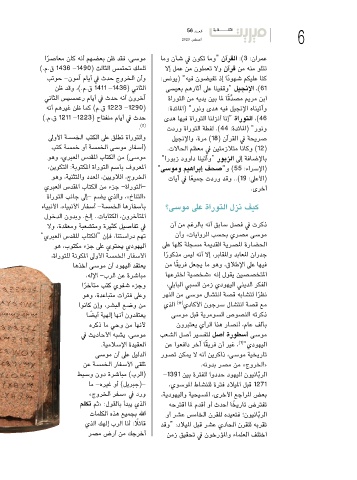 العدد 56
أغسطس 2023
6
عمران: 3)؛ القرآن "وما تكون في شأن وما
تتلو منه من قرآن ولا تعملون من عمل إلا
كنا عليكم شهودًا إذ تفيضون فيه" (يونس:
61)؛ الإنجيل "وقفينا على آثارهم بعيسى
ابن مريم مصدقًا لما بين يديه من التوراة
وآتيناه الإنجيل فيه هدى ونور" (المائدة:
46)؛ التوراة "إنا أنزلنا التوراة فيها هدى
ونور" (المائدة: 44). لفظة التوراة وردت
صريحة في القرآن (18) مرة، والإنجيل
(12) وكانا متلازمتين في معظم الحالات.
بالإضافة إلى الزبور "وآتينا داوود زبورا"
(الإسراء: 55) و"صحف إبراهيم وموسى"
(الأعلى: 19).. وقد وردت جميعًا في آيات
أخرى.
كيف نزل التوراة على موسى؟
ذكرت في فصل سابق أنه بالرغم من أن
موسى مصري بحسب الروايات، وأن
الحضارة المصرية القديمة مسجلة كلها على
جدران المعابد والمقابر، إلا أنه ليس مذكورًا
فيها على الإطلاق، وهو ما يجعل فريقًا من
المتخصصين يقول إنه «شخصية اخترعها
الفكر الديني اليهودي زمن السبي البابلي،
نظرًا لتشابه قصة انتشال موسى من النهر
مع قصة انتشال سرجون الأكادي" الذي
ذكرته النصوص السومرية قبل موسى
بألف عام. أنصار هذا الرأي يعتبرون
موسى أسطورة أصل لتفسير أصل الشعب
اليهودي"، غير أن فريقًا آخر دافعوا عن
تاريخية موسى، ذاكرين أنه لا يمكن تصور
«الخروج» من مصر بدونه.
الربّانيون اليهود حددوا الفترة بين 1391-
1271 قبل الميلاد فترة للنشاط الموسوي،
بعض المراجع الأخرى، المسيحية واليهودية،
تفترض تاريخًا أحدث أو أقدم لما اقترحه
الربّانيون؛ فتعيده للقرن الخامس عشر أو
تقربه للقرن الحادي عشر قبل الميلاد، "وقد
اختلف العلماء والمؤرخون في تحقيق زمن
موسى، فقد ظن بعضهم أنه كان معاصرًا
للملك تحتمس الثالث (1490- 1436 ق.م.)
وأن الخروج حدث في أيام آمون- حوتب
الثاني (1436- 1411 ق.م.)، وقد ظن
آخرون أنه حدث في أيام رعمسيس الثاني
(1290- 1223 ق.م) كما ظن غيرهم أنه
حدث في أيام منفتاح (1223- 1211 ق.م.)
والتوراة تطلق على الكتب الخمسة الأولى
(أسفار موسى الخمسة أو خمسة كتب
موسى) من الكتاب المقدس العبري، وهو
المعروف باسم التوراة المكتوبة: التكوين،
الخروج، اللاويين، العدد والتثنية. وهو
-التوراة- جزء من الكتاب المقدس العبري
«التناخ»، والذي يضم -إلى جانب التوراة
بأسفارها الخمسة- أسفار الأنبياء، الأنبياء
المتأخرون، الكتابات.. إلخ. وبدون الدخول
في تفاصيل كثيرة ومتشعبة ومعقدة، ولا
تهم دراستنا، فإن "الكتاب المقدس العبري"
اليهودي يحتوي على جزء مكتوب، هو
الأسفار الخمسة الأولى المكونة للتوراة،
يعتقد اليهود أن موسى أخذها
مباشرة عن الرب- الإله،
وجزء شفوي كتب متأخرًا
وعلى فترات متباعدة، وهو
من وضع البشر، وإن كانوا
يعتقدون أنها إلهية أيضًا
لأنها من وحي ما ذكره
موسى، يشبه الأحاديث في
العقيدة الإسلامية.
الدليل على أن موسى
تلقى الأسفار الخمسة عن
(الرب) مباشرة دون وسيط
-(جبريل) أو غيره- ما
ورد في «سفر الخروج»
الذي يبدأ بالقول: «ثم تكلم
الله بجميع هذه الكلمات
قائلًا: أنا الرب إلهك الذي
أخرجك من أرض مصر